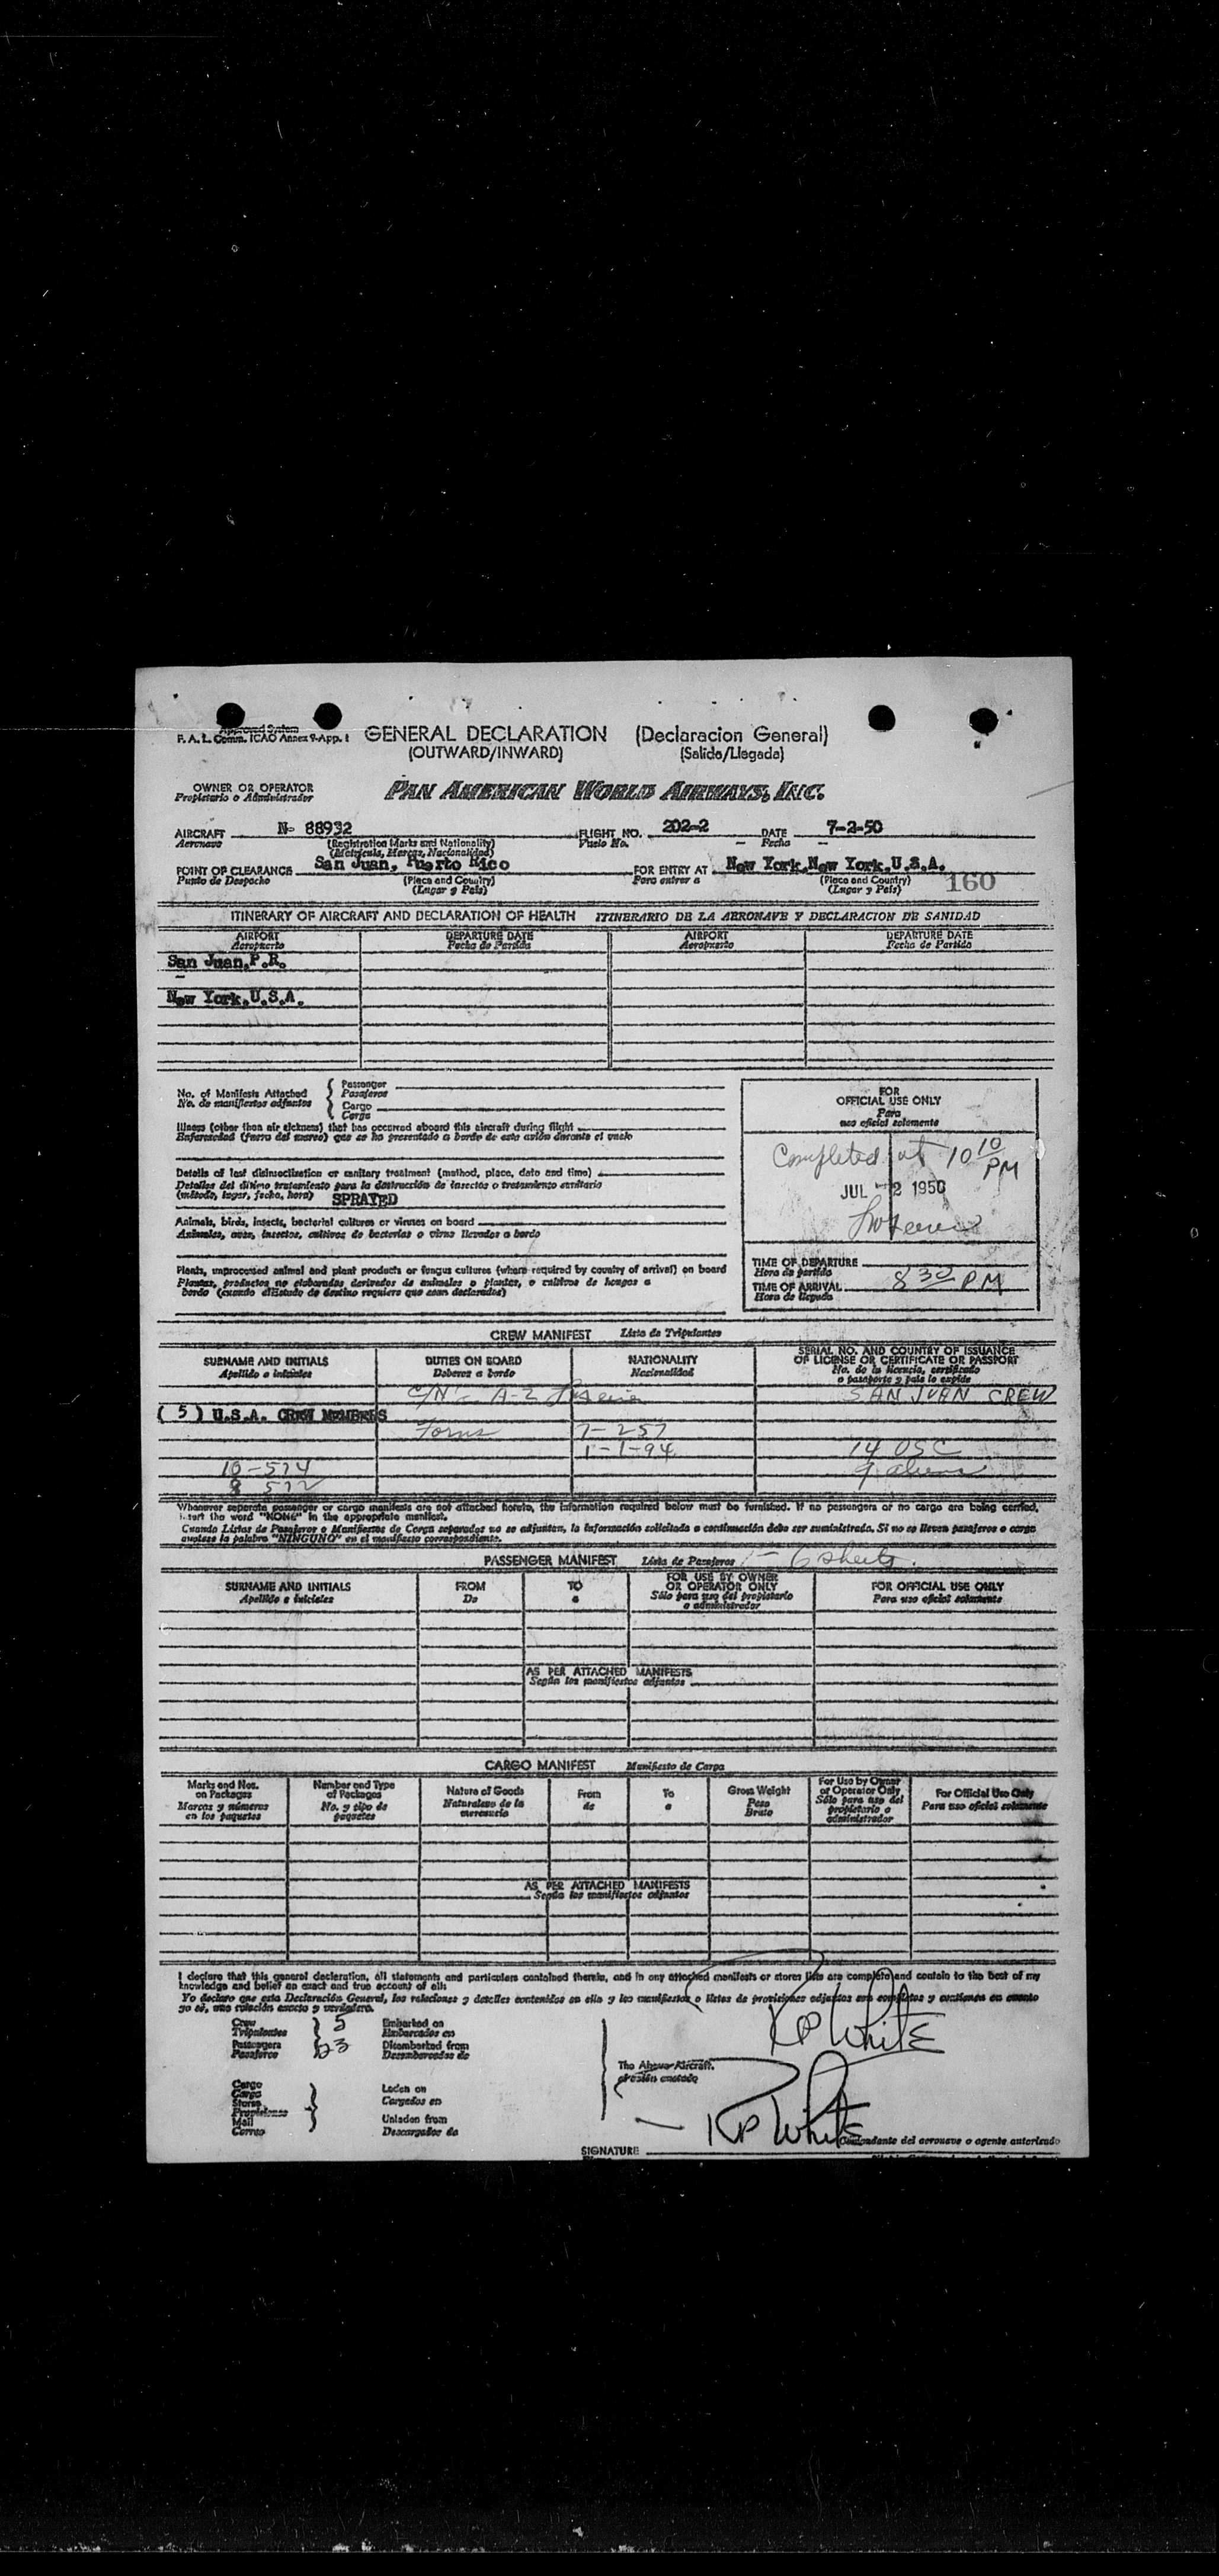 Approved System
F. A. L. Comm. ICAO Annex 9-App. 1
GENERAL DECLARATION (Declaracion General)
(OUTWARD/INWARD) (Salida/Llegada)
OWNER OR OPERATOR
Propietario o Administrador
PAN AMERICAN WORLD AIRWAYS, INC.
AIRCRAFT N- 88932 FLIGHT NO. 202-2 DATE 7-2-50
Aeronave (Registration Marks and Nationality) Vuelo No. Fecha
(Matricula, Marcas, Nacionalidad)
POINT OF CLEARANCE San Juan, Puerto Rico FOR ENTRY AT New York,New York,U.S.A.
Punto de Despacho (Place and Country) Para entrar a (Place and Country)
(Lugar y País) (Lugar y País) 160
ITINERARY OF AIRCRAFT AND DECLARATION OF HEALTH ITINERARIO DE LA AERONAVE Y DECLARACION DE SANIDAD
AIRPORT DEPARTURE DATE AIRPORT DEPARTURE DATE
Aeropuerto Fecha de Partida Aeropuerto Fecha de Partida
San Juan,P.R.
-
New York,U.S.A.
No. of Manifests Attached Passenger
No. de manifiestos adjuntos Pasajeros
Cargo
Carga
Illness (other than air sickness) that has occurred aboard this aircraft during flight
Enfermedad (fuera del mareo) que se ha presentado a bordo de este avión durante el vuelo
Details of last disinsectization or sanitary treatment (method, place, date and time)
Detalles del último tratamiento para la destrucción de insectos o tratamiento sanitario
(método, lugar, fecha, hora) SPRAYED
Animals, birds, insects, bacterial cultures or viruses on board
Animales, aves, insectos, cultivos de bacterias o virus llevados a bordo
Plants, unprocessed animal and plant products or fungus cultures (where required by country of arrival) on board
Plantas, productos no elaborados derivados de animales o plantas, o cultivos de hongos a
bordo (cuando el Estado de destino requiere que sean declarados)
FOR
OFFICIAL USE ONLY
Para
uso oficial solamente
Completed at 10 10 PM
JUL - 2 1950
TIME OF DEPARTURE
Hora de partida
TIME OF ARRIVAL 8 30 PM
Hora de llegada
CREW MANIFEST Lista de Tripulantes
SURNAME AND INITIALS DUTIES ON BOARD NATIONALITY SERIAL NO. AND COUNTRY OF ISSUANCE OF LICENSE OR CERTIFICATE OR PASSPORT
Apellido e iniciales Deberes a bordo Nacionalidad No. de la licencia, certificado o pasaporte y país lo expide
SAN JUAN CREW
( 5 ) U.S.A. CREW MEMBERS
Forms 7-257
1-1-94 14 USC
10-574 9 aliens
8 572
Whenever separate passenger or cargo manifests are not attached hereto, the information required below must be furnished. If no passengers or no cargo are being carried,
insert the word "NONE" in the appropriate manifest.
Cuando Listas de Pasajeros o Manifiestos de Carga separados no se adjuntan, la información solicitada a continuación debe ser suministrada. Si no se llevan pasajeros o carga
anótese la palabra "NINGUNO" en el manifiesto correspondiente.
PASSENGER MANIFEST Lista de Pasajeros - 6 sheets.
SURNAME AND INITIALS FROM TO FOR USE BY OWNER OR OPERATOR ONLY FOR OFFICIAL USE ONLY
Apellido e iniciales De a Sólo para uso del propietario o administrador Para uso oficial solamente
AS PER ATTACHED MANIFESTS
Según los manifiestos adjuntos
CARGO MANIFEST Manifiesto de Carga
Marks and Nos. on Packages Number and Type of Packages Nature of Goods From To Gross Weight For Use by Owner or Operator Only For Official Use Only
Marcas y números en los paquetes No. y tipo de paquetes Naturaleza de la mercancía de a Peso Bruto Sólo para uso del propietario o administrador Para uso oficial solamente
AS PER ATTACHED MANIFESTS
Según los manifiestos adjuntos
I declare that this general declaration, all statements and particulars contained therein, and in any attached manifests or stores lists are complete and contain to the best of my
knowledge and belief an exact and true account of all:
Yo declaro que esta Declaración General, las relaciones y detalles contenidos en ella y los manifiestos o listas de provisiones adjuntos son completos y contienen en cuanto
yo sé, una relación exacta y verdadera.
Crew 5 Embarked on
Tripulantes Embarcados en
Passengers 23 Disembarked from
Pasajeros Desembarcados de
KP White
The Above Aircraft.
Cargo Laden on
Carga Cargados en
Stores
Provisiones
Mail Unladen from
Correo Descargados de
KP White
SIGNATURE Comandante del aeronave o agente autorizado